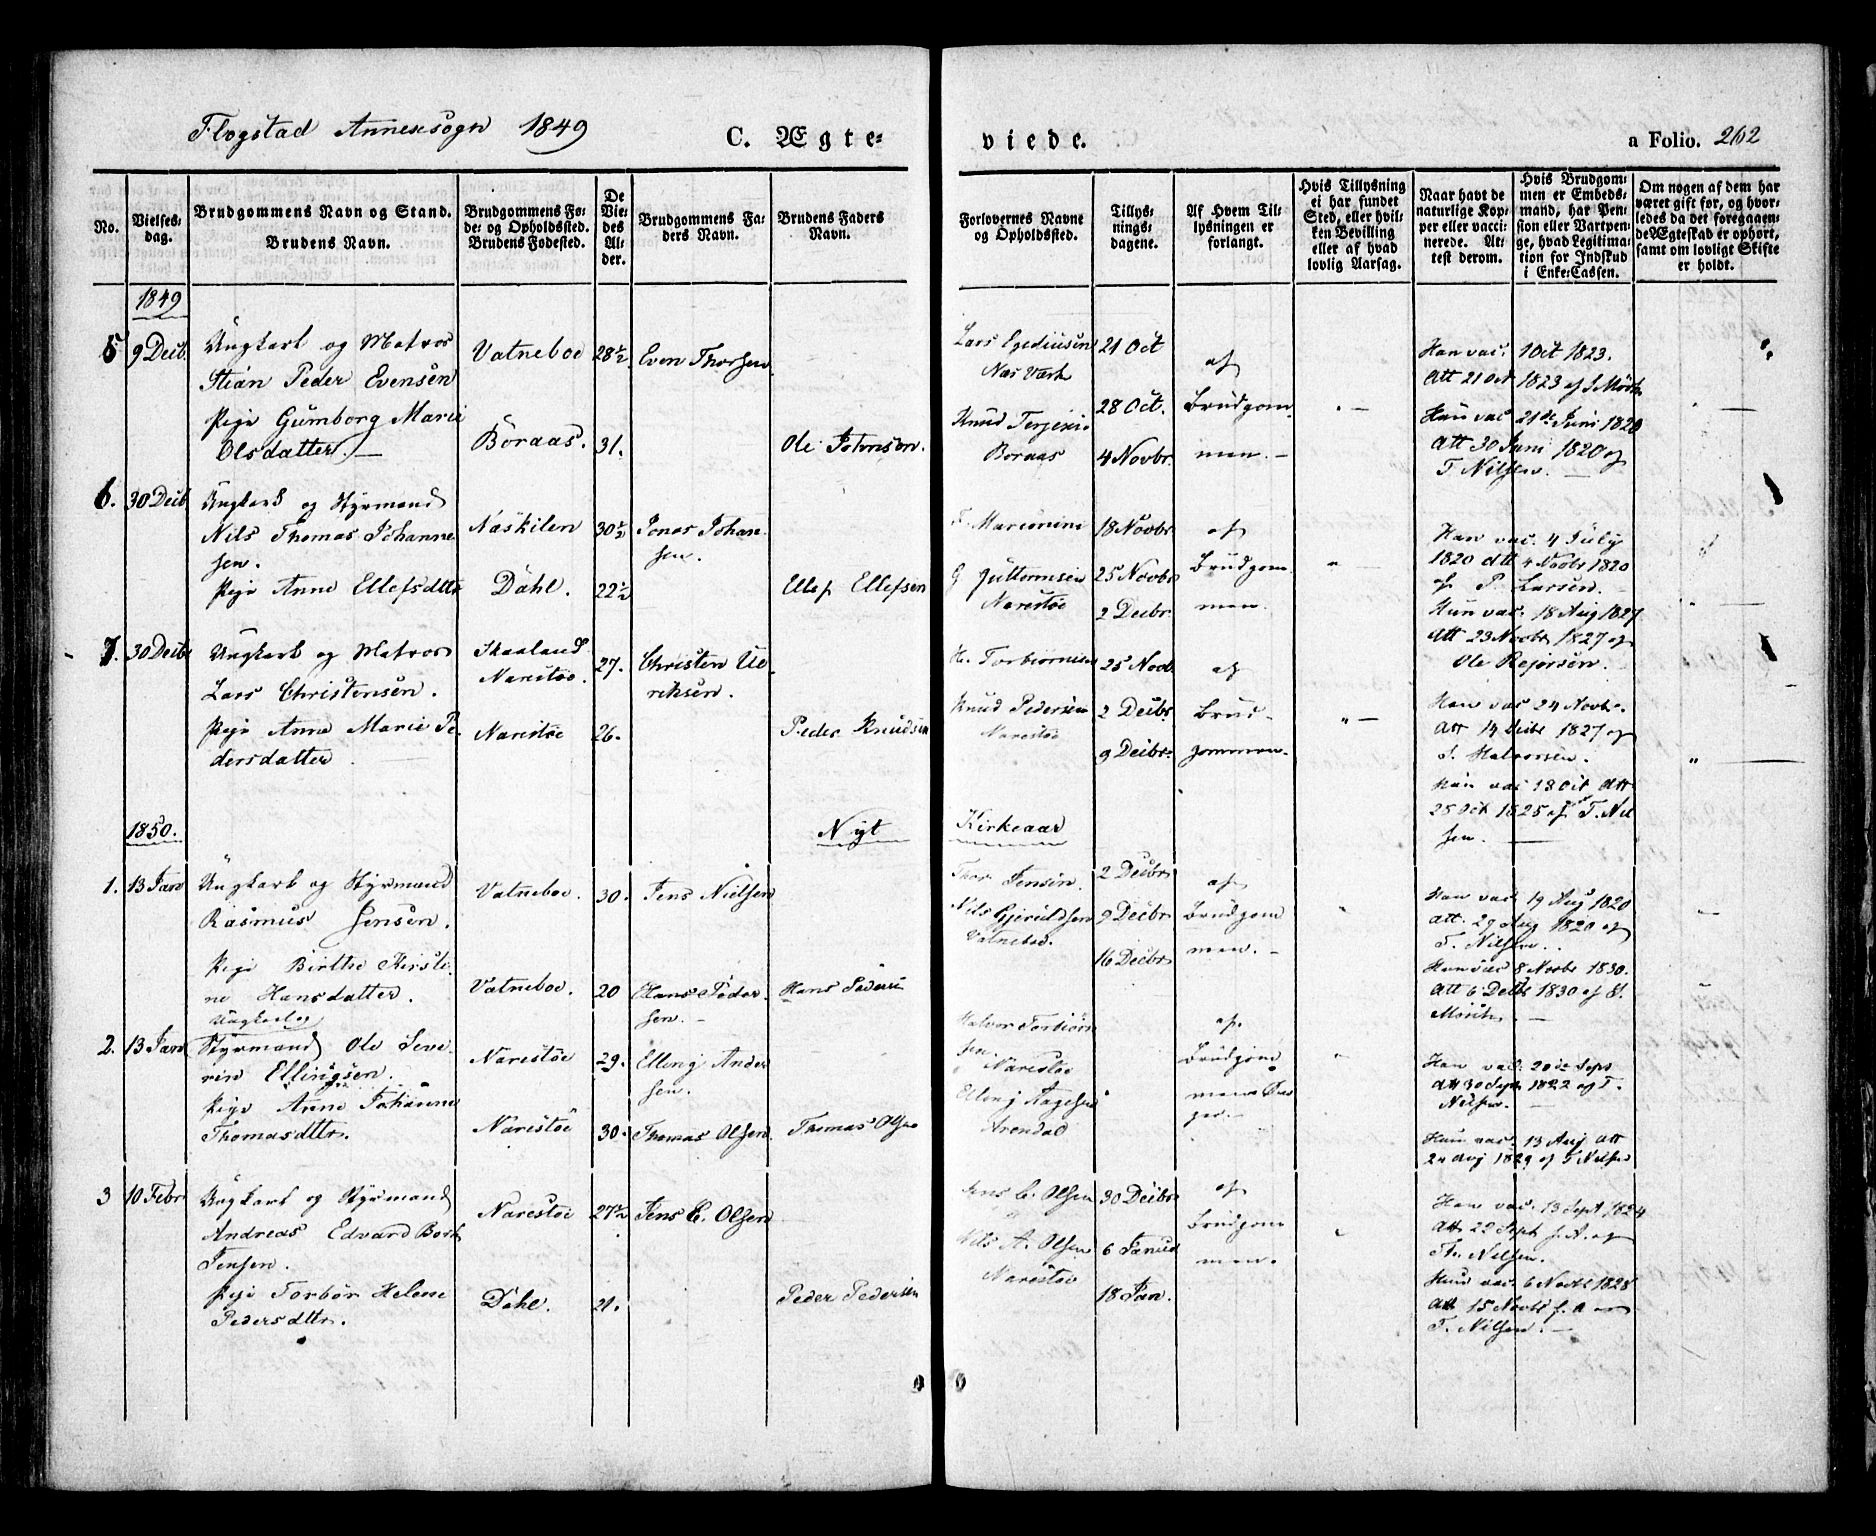 Flogstad Annexsogn 1849
C. Ægte-
viede.
a Folio. 262
No.
Vielses-
dag.
Brudgommens Navn og Stand.
Brudens Navn.
Brudgommens Fø-
de- og Opholdssted.
Brudens Fødested.
De
Vie-
des
Al-
der.
Brudgommens Fa-
ders Navn.
Brudens Faders
Navn.
Forlovernes Navne
og Opholdssted.
Tillys-
nings-
dagene.
Af Hvem Til-
lysningen er
forlangt.
Hvis Tillysning
ei har fundet
Sted, eller hvil-
ken Bevilling
eller af hvad
lovlig Aarsag.
Naar havt de
naturlige Kop-
per eller vacci-
nerede. At-
test derom.
Hvis Brudgom-
men er Embeds-
mand, har Pen-
sion eller Vartpen-
ge, hvad Legitima-
tion for Indskud
i Enke-Cassen.
Om nogen af dem har
været gift før, og hvor-
ledes da det foregaaen-
de Ægteskab er ophørt,
samt om lovligt Skifte
er holdt.
1849
5 9 Decb.
Ungkarl og Matros
Stian Peder Evensen
Pige Gumborg Marie
Olsdatter.
Vatneboe
Boraas.
28½
31.
Even Thorsen
Ole Johnsen.
Lars Egediusen
Næs Værk
Knud Terjesen
Boraas
21 Oct
28 Oct.
4 Novbr.
af
Brudgom
men.
Han vac. 1 Oct 1823.
Att 21 Oct 1823 af S Mørch
Hun vac 21de Juni 1820
Att 30 Juni 1820 af
T Nilsen.
6. 30 Decb.
Ungkarl og Styrmand
Nils Thomas Johanne
sen.
Pige Anne Ellefsdttr
Naskilen
Dahl.
30½
22½
Jonas Johan-
sen.
Ellef Ellefsen
G Guttormsen
Narestøe
18 Novbr.
25 Novbr
2 Decbr.
af
Brudgom
men.
Han vac. 4 July
1820 Att 4 Novbr 1820
af P. Larsen.
Hun vac. 18 Aug 1827
Att 23 Novbr 1827 af
Ole Rejersen.
7. 30 Decbr
Ungkarl og Matros
Lars Christensen.
Pige Anne Marie Pe-
dersdatter
Skaaland
Narestøe.
Narestøe
27.
26.
Christen Ul-
riksen.
Peder Knudsen
H. Torbiørnsen
Knud Pedersen
Narestøe
25 Novb.
2 Decbr
9 Decbr.
af
Brud-
gommen.
Han vac 24 Novbr.
Att 14 Decbr 1827 af
S. Halvorsen.
Hun vac 13 Oct Att
25 Oct 1825 af T. Nil
sen.
1850.
Nyt
Kirkeaar
1. 13 Jan
Ungkarl og Styrmand
Rasmus Jensen.
Pige Birthe Kirsti-
ne Hansdatter.
Vatneboe.
Vatneboe.
30.
20
Jens Nielsen
Hans Peder-
sen.
Hans Pedersen
Thor Jensen.
Nils Gjeruldsen
Vatneboe.
2 Decbr
9 Decbr
16 Decbr
af
Brudgom
men.
Han vac. 19 Aug 1820
Att. 27 Aug 1820 af
T. Nilsen.
Hun vac 8 Novbr 1830.
Att 6 Decbr 1830 af S.
Mørch.
2. 13 Jan
Ungkarl og
Styrmand Ole Seve-
rin Ellingsen.
Pige Anne Johanne
Thomasdttr.
Narestøe
Narestøe
29.
30.
Elling Ander
sen.
Thomas Olsen.
Thomas Olsen
Halvor Torbiørn
sen
Narestøe
Elling Aagesen
Arendal
af.
Brudgom
Han vac. 20de Septr
Att 30 Septr 1822 af T.
Nilsen.
Hun vac. 13 Aug Att
24 Aug 1829 af T Nilsen
3 10 Febr
Ungkarl og Styrmand
Andreas Edvard Bork
Jensen.
Pige Torbør Helene
Pedersdttr.
Narestøe
Dahl.
27½
21.
Jens C. Olsen
Peder Pedersen
Jens C. Olsen
Nils A. Olsen
Narestøe
30 Decbr
6 Januar
18 Jan.
af
Brudgom
men.
Han vac. 13 Sept 1824
Att 22 Sept s. A. af
Th. Nilsen.
Hun vac. 6 Novbr 1828
Att 15 Novbr s. A
T. Nilsen.